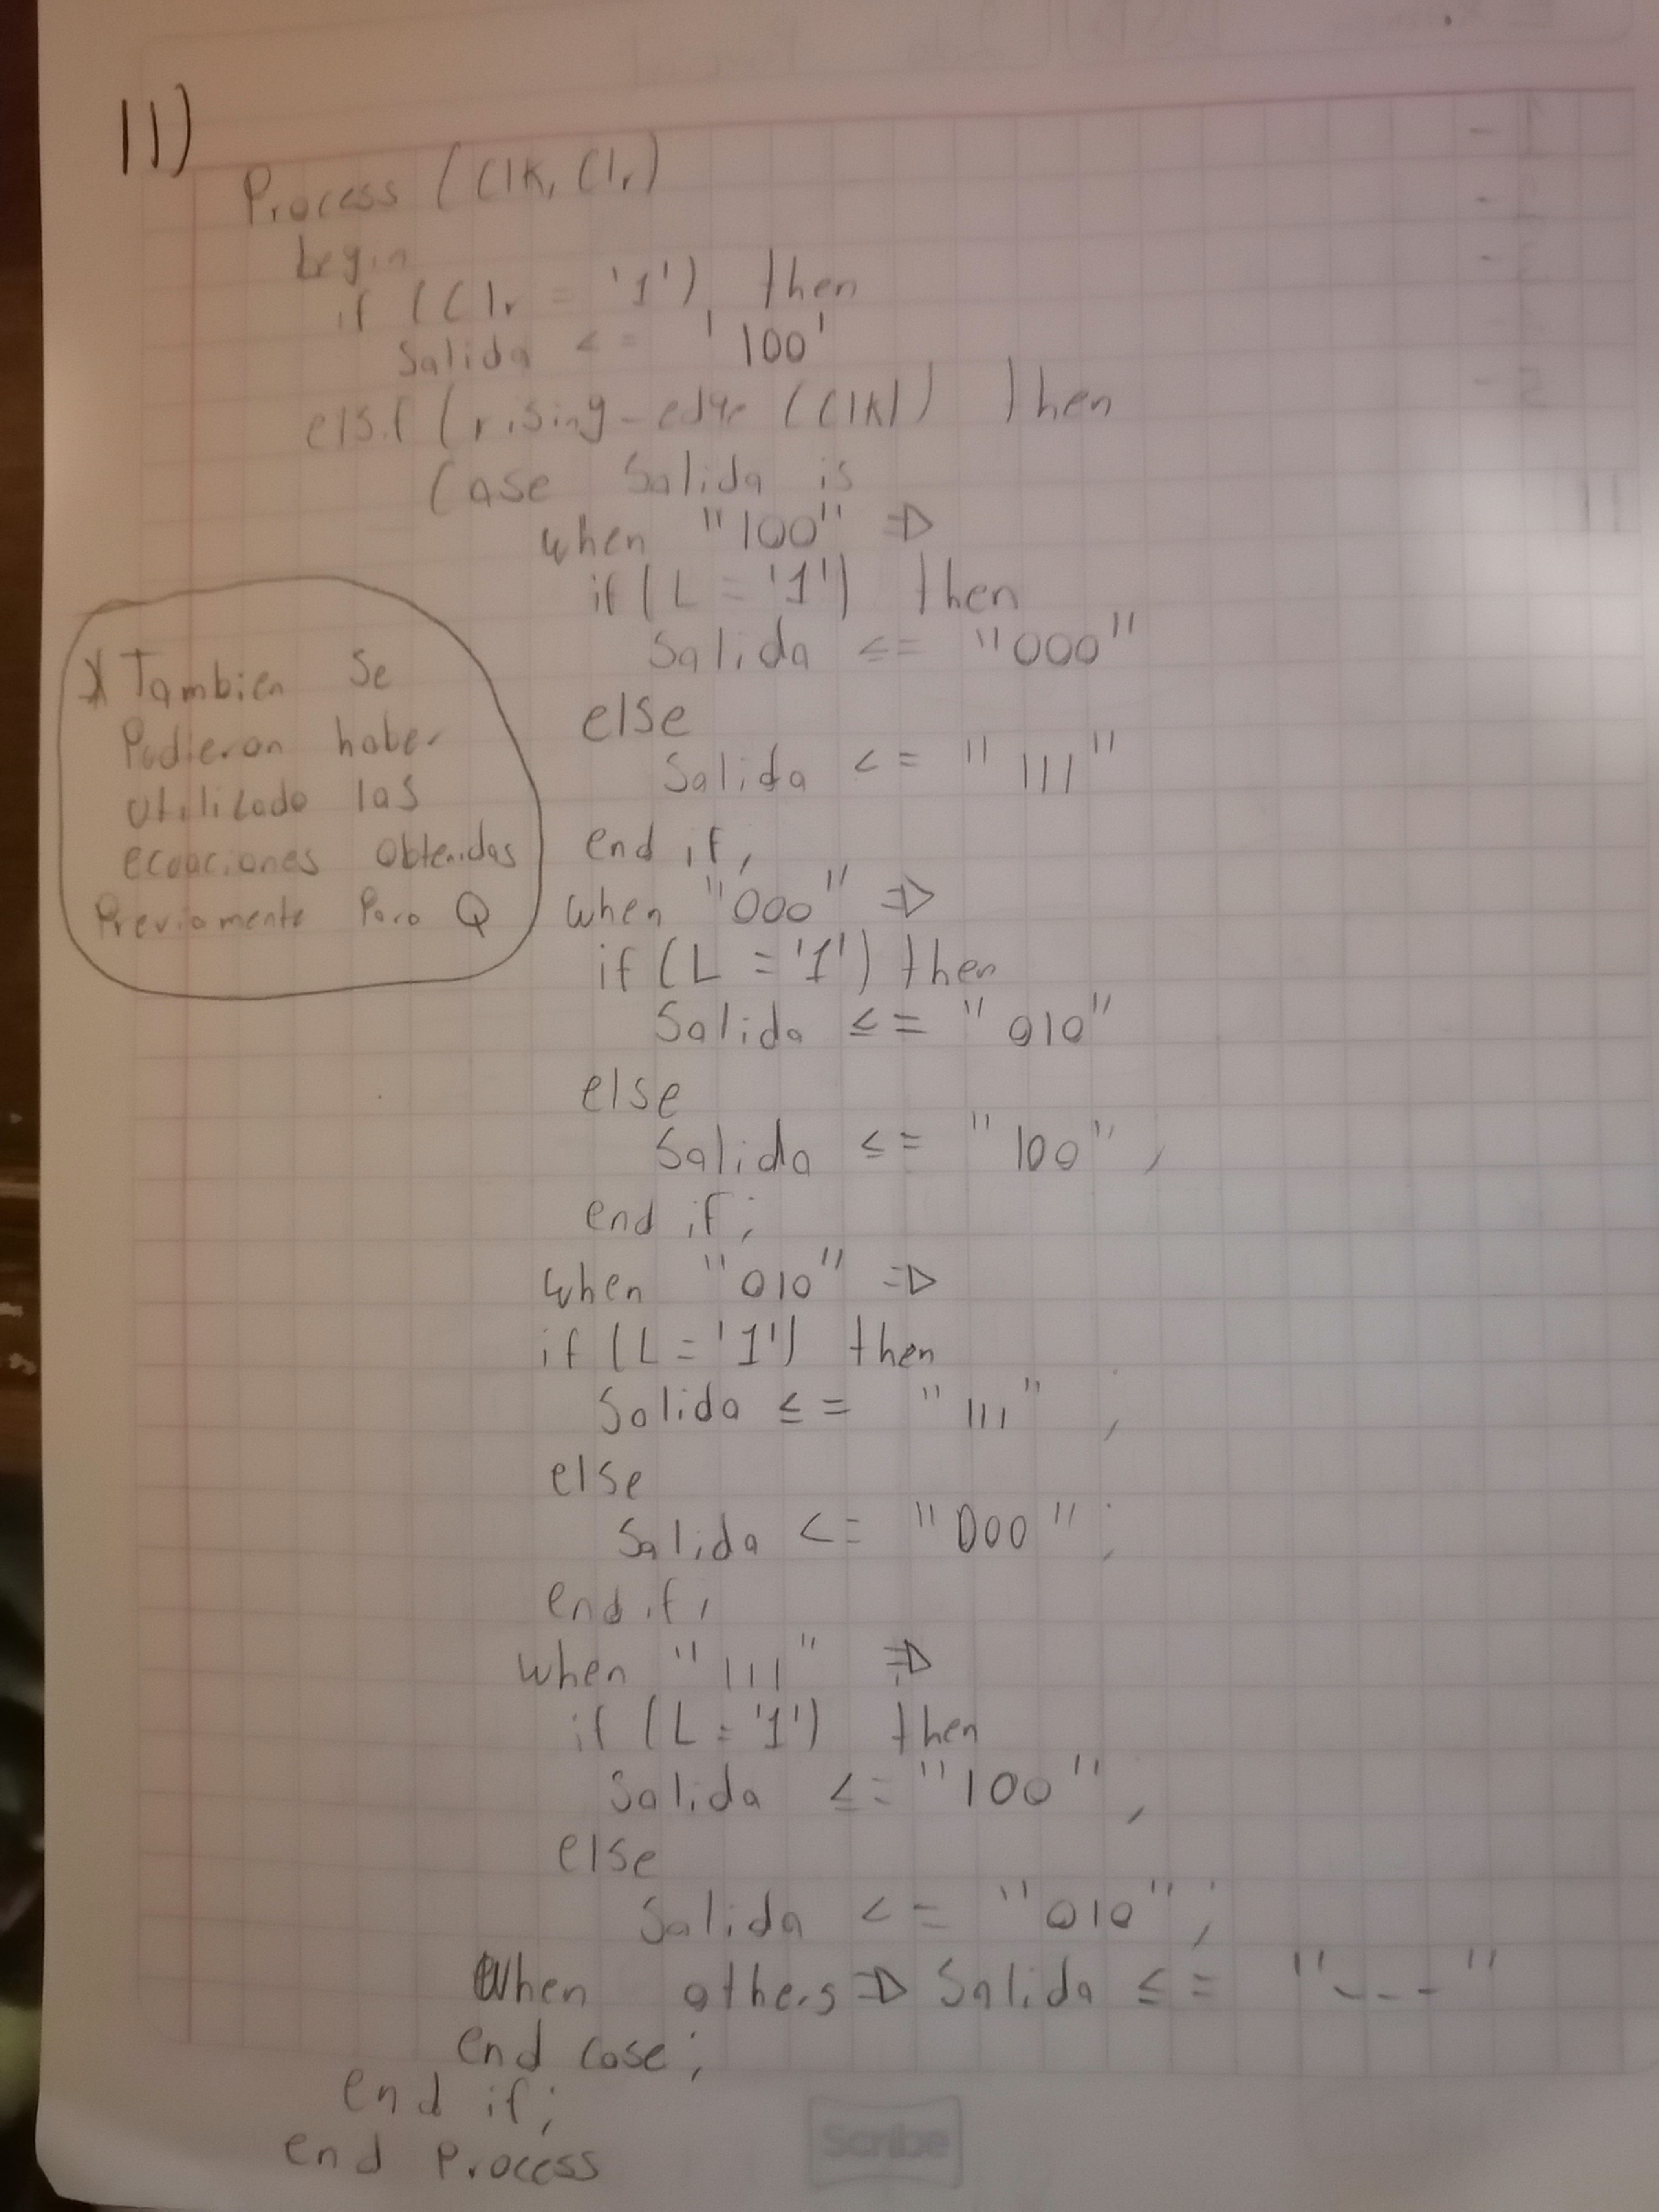 11)
Process (Clk, Clr)
begin
if (Clr = '1') then
Salida <= '100'
elsif (rising-edge (Clk)) then
Case Salida is
when "100" =>
if (L = '1') then
Salida <= "000"
else
Salida <= "111"
end if;
when "000" =>
if (L = '1') then
Salida <= "010"
else
Salida <= "100";
end if;
when "010" =>
if (L = '1') then
Salida <= "111";
else
Salida <= "000";
end if;
when "111" =>
if (L = '1') then
Salida <= "100";
else
Salida <= "010";
When others => Salida <= "---"
end case;
end if;
end Process
* Tambien Se
Pudieron haber
utilizado las
ecuaciones obtenidas
Previamente Para Q
Scribe